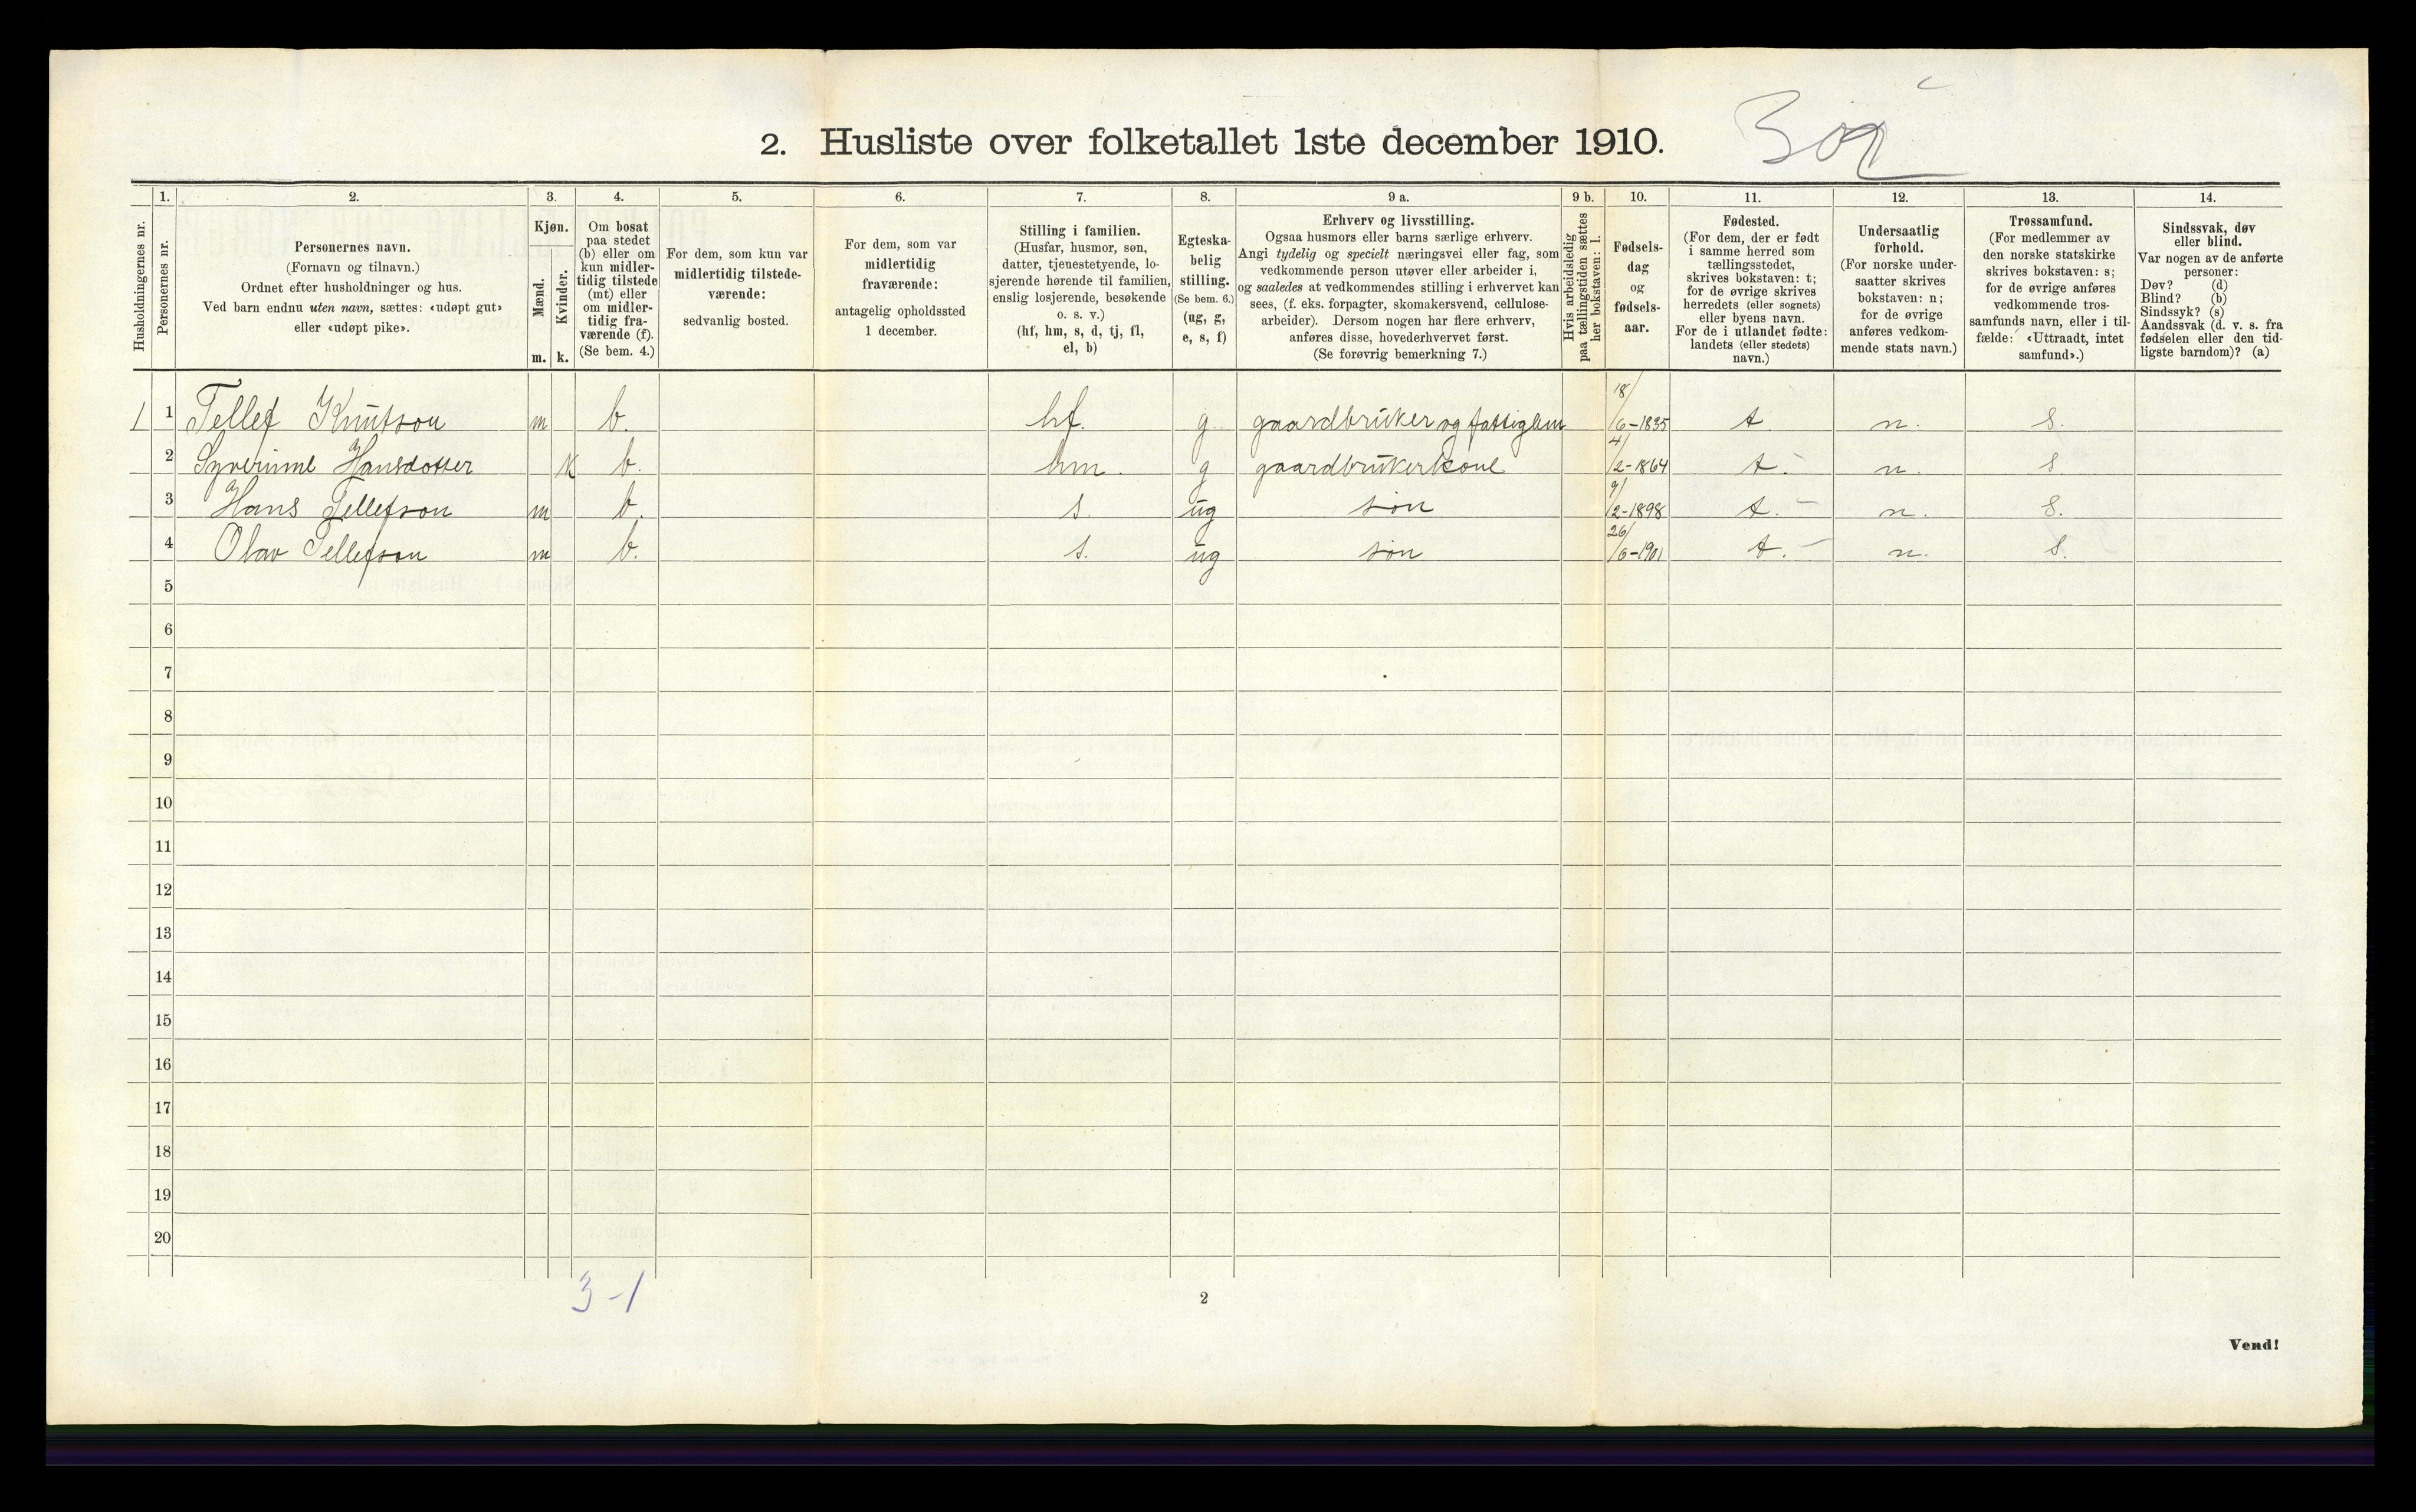 2. Husliste over folketallet 1ste december 1910.
Husholdningernes nr.
1.
Personernes nr.
2.
Personernes navn.
(Fornavn og tilnavn.)
Ordnet efter husholdninger og hus.
Ved barn endnu uten navn, sættes: «udøpt gut»
eller «udøpt pike».
3.
Kjøn.
Mænd.
Kvinder.
m. k.
4.
Om bosat
paa stedet
(b) eller om
kun midler-
tidig tilstede
(mt) eller
om midler-
tidig fra-
værende (f).
(Se bem. 4.)
5.
For dem, som kun var
midlertidig tilstede-
værende:
sedvanlig bosted.
6.
For dem, som var
midlertidig
fraværende:
antagelig opholdssted
1 december.
7.
Stilling i familien.
(Husfar, husmor, søn,
datter, tjenestetyende, lo-
sjerende hørende til familien,
enslig losjerende, besøkende
o. s. v.)
(hf, hm, s, d, tj, fl,
el, b)
8.
Egteska-
belig
stilling.
(Se bem. 6.)
(ug, g,
e, s, f)
9 a.
Erhverv og livsstilling.
Ogsaa husmors eller barns særlige erhverv.
Angi tydelig og specielt næringsvei eller fag, som
vedkommende person utøver eller arbeider i,
og saaledes at vedkommendes stilling i erhvervet kan
sees, (f. eks. forpagter, skomakersvend, cellulose-
arbeider). Dersom nogen har flere erhverv,
anføres disse, hovederhvervet først.
(Se forøvrig bemerkning 7.)
9 b.
Hvis arbeidsledig
paa tællingstiden sættes
her bokstaven: l.
10.
Fødsels-
dag
og
fødsels-
aar.
11.
Fødested.
(For dem, der er født
i samme herred som
tællingsstedet,
skrives bokstaven: t;
for de øvrige skrives
herredets (eller sognets)
eller byens navn.
For de i utlandet fødte:
landets (eller stedets)
navn.)
12.
Undersaatlig
forhold.
(For norske under-
saatter skrives
bokstaven: n;
for de øvrige
anføres vedkom-
mende stats navn.)
13.
Trossamfund.
(For medlemmer av
den norske statskirke
skrives bokstaven: s;
for de øvrige anføres
vedkommende tros-
samfunds navn, eller i til-
fælde: «Uttraadt, intet
samfund».)
14.
Sindssvak, døv
eller blind.
Var nogen av de anførte
personer:
Døv? (d)
Blind? (b)
Sindssyk? (s)
Aandssvak (d. v. s. fra
fødselen eller den tid-
ligste barndom)? (a)
1 1 Tellef Knutson m b. hf. g gaardbruker og fattiglem 18/6-1835 t. n. s.
2 Syverinne Hansdotter k b. hm. g gaardbrukerkone 4/2-1864 t. n. s
3 Hans Tellefson m b. s. ug søn 9/2-1898 t. n. s.
4 Olav Tellefson m b. s. ug søn 26/6-1901 t. n. s.
5
6
7
8
9
10
11
12
13
14
15
16
17
18
19
20
3-1
2
Vend!